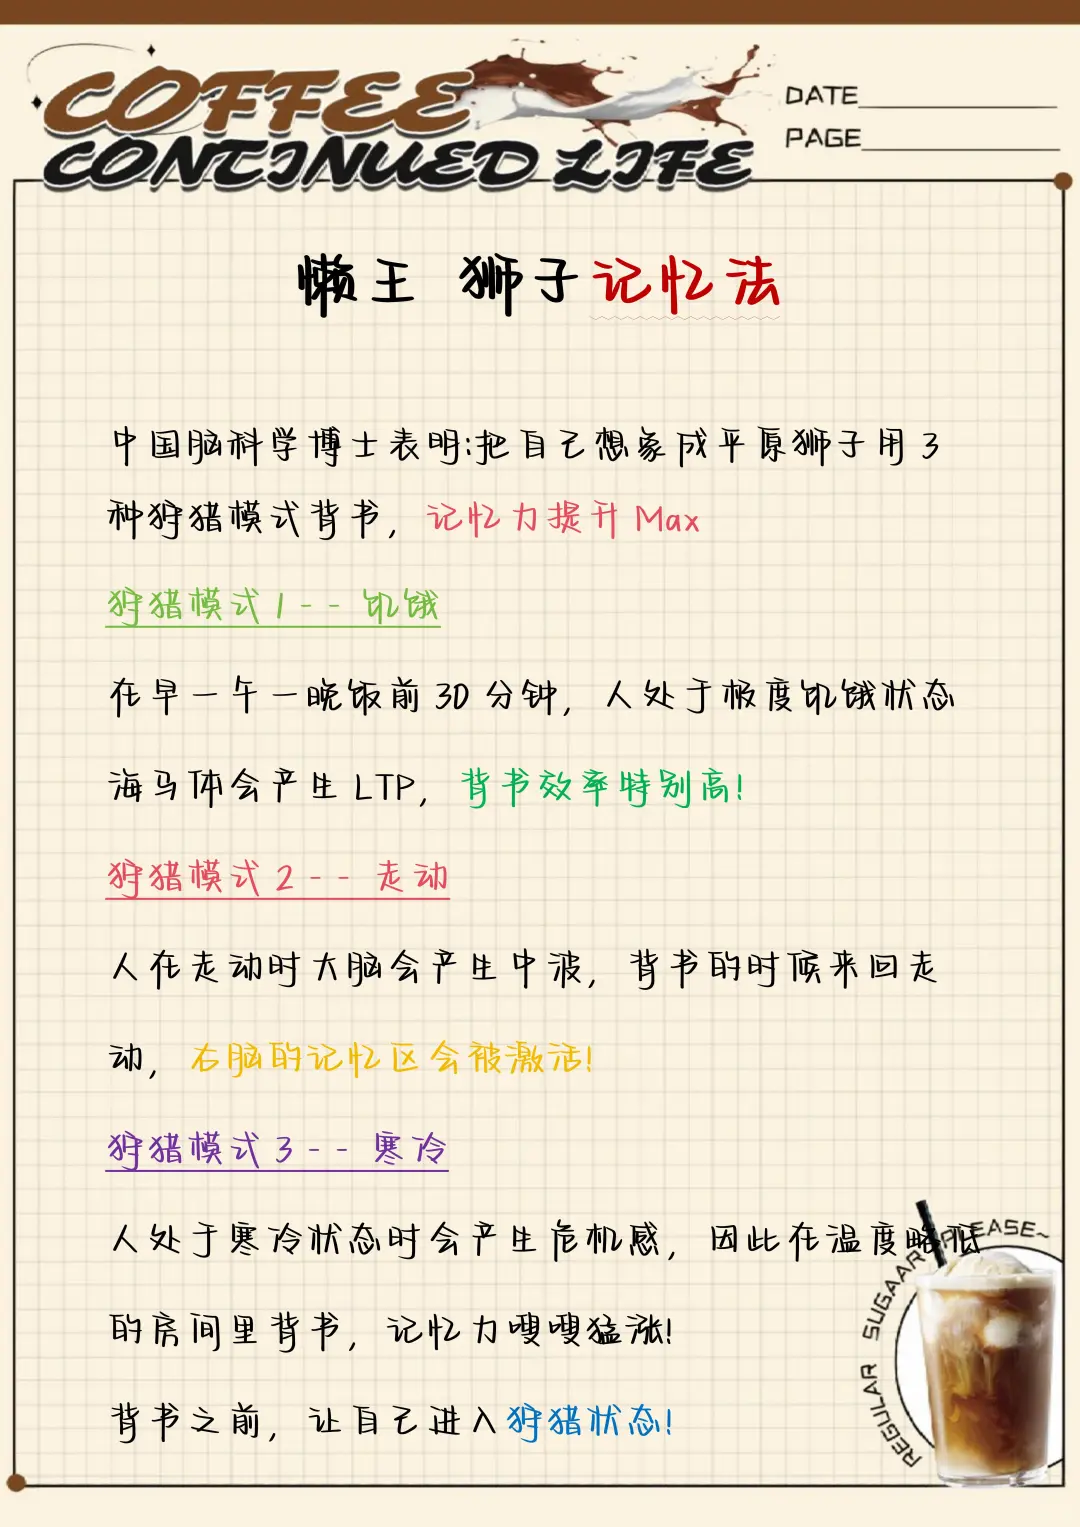 COFFEE
CONTINUED LIFE
DATE
PAGE
懒王 狮子记忆法
中国脑科学博士表明:把自己想象成平原狮子用 3
种狩猎模式背书，记忆力提升 Max
狩猎模式 1 -- 饥饿
在早一午一晚饭前 30 分钟，人处于极度饥饿状态
海马体会产生 LTP，背书效率特别高!
狩猎模式 2 -- 走动
人在走动时大脑会产生中波，背书的时候来回走
动，右脑的记忆区会被激活!
狩猎模式 3 -- 寒冷
人处于寒冷状态时会产生危机感，因此在温度略低
的房间里背书，记忆力嗖嗖猛涨!
背书之前，让自己进入狩猎状态!
REGULAR SUGAAR PLEASE~